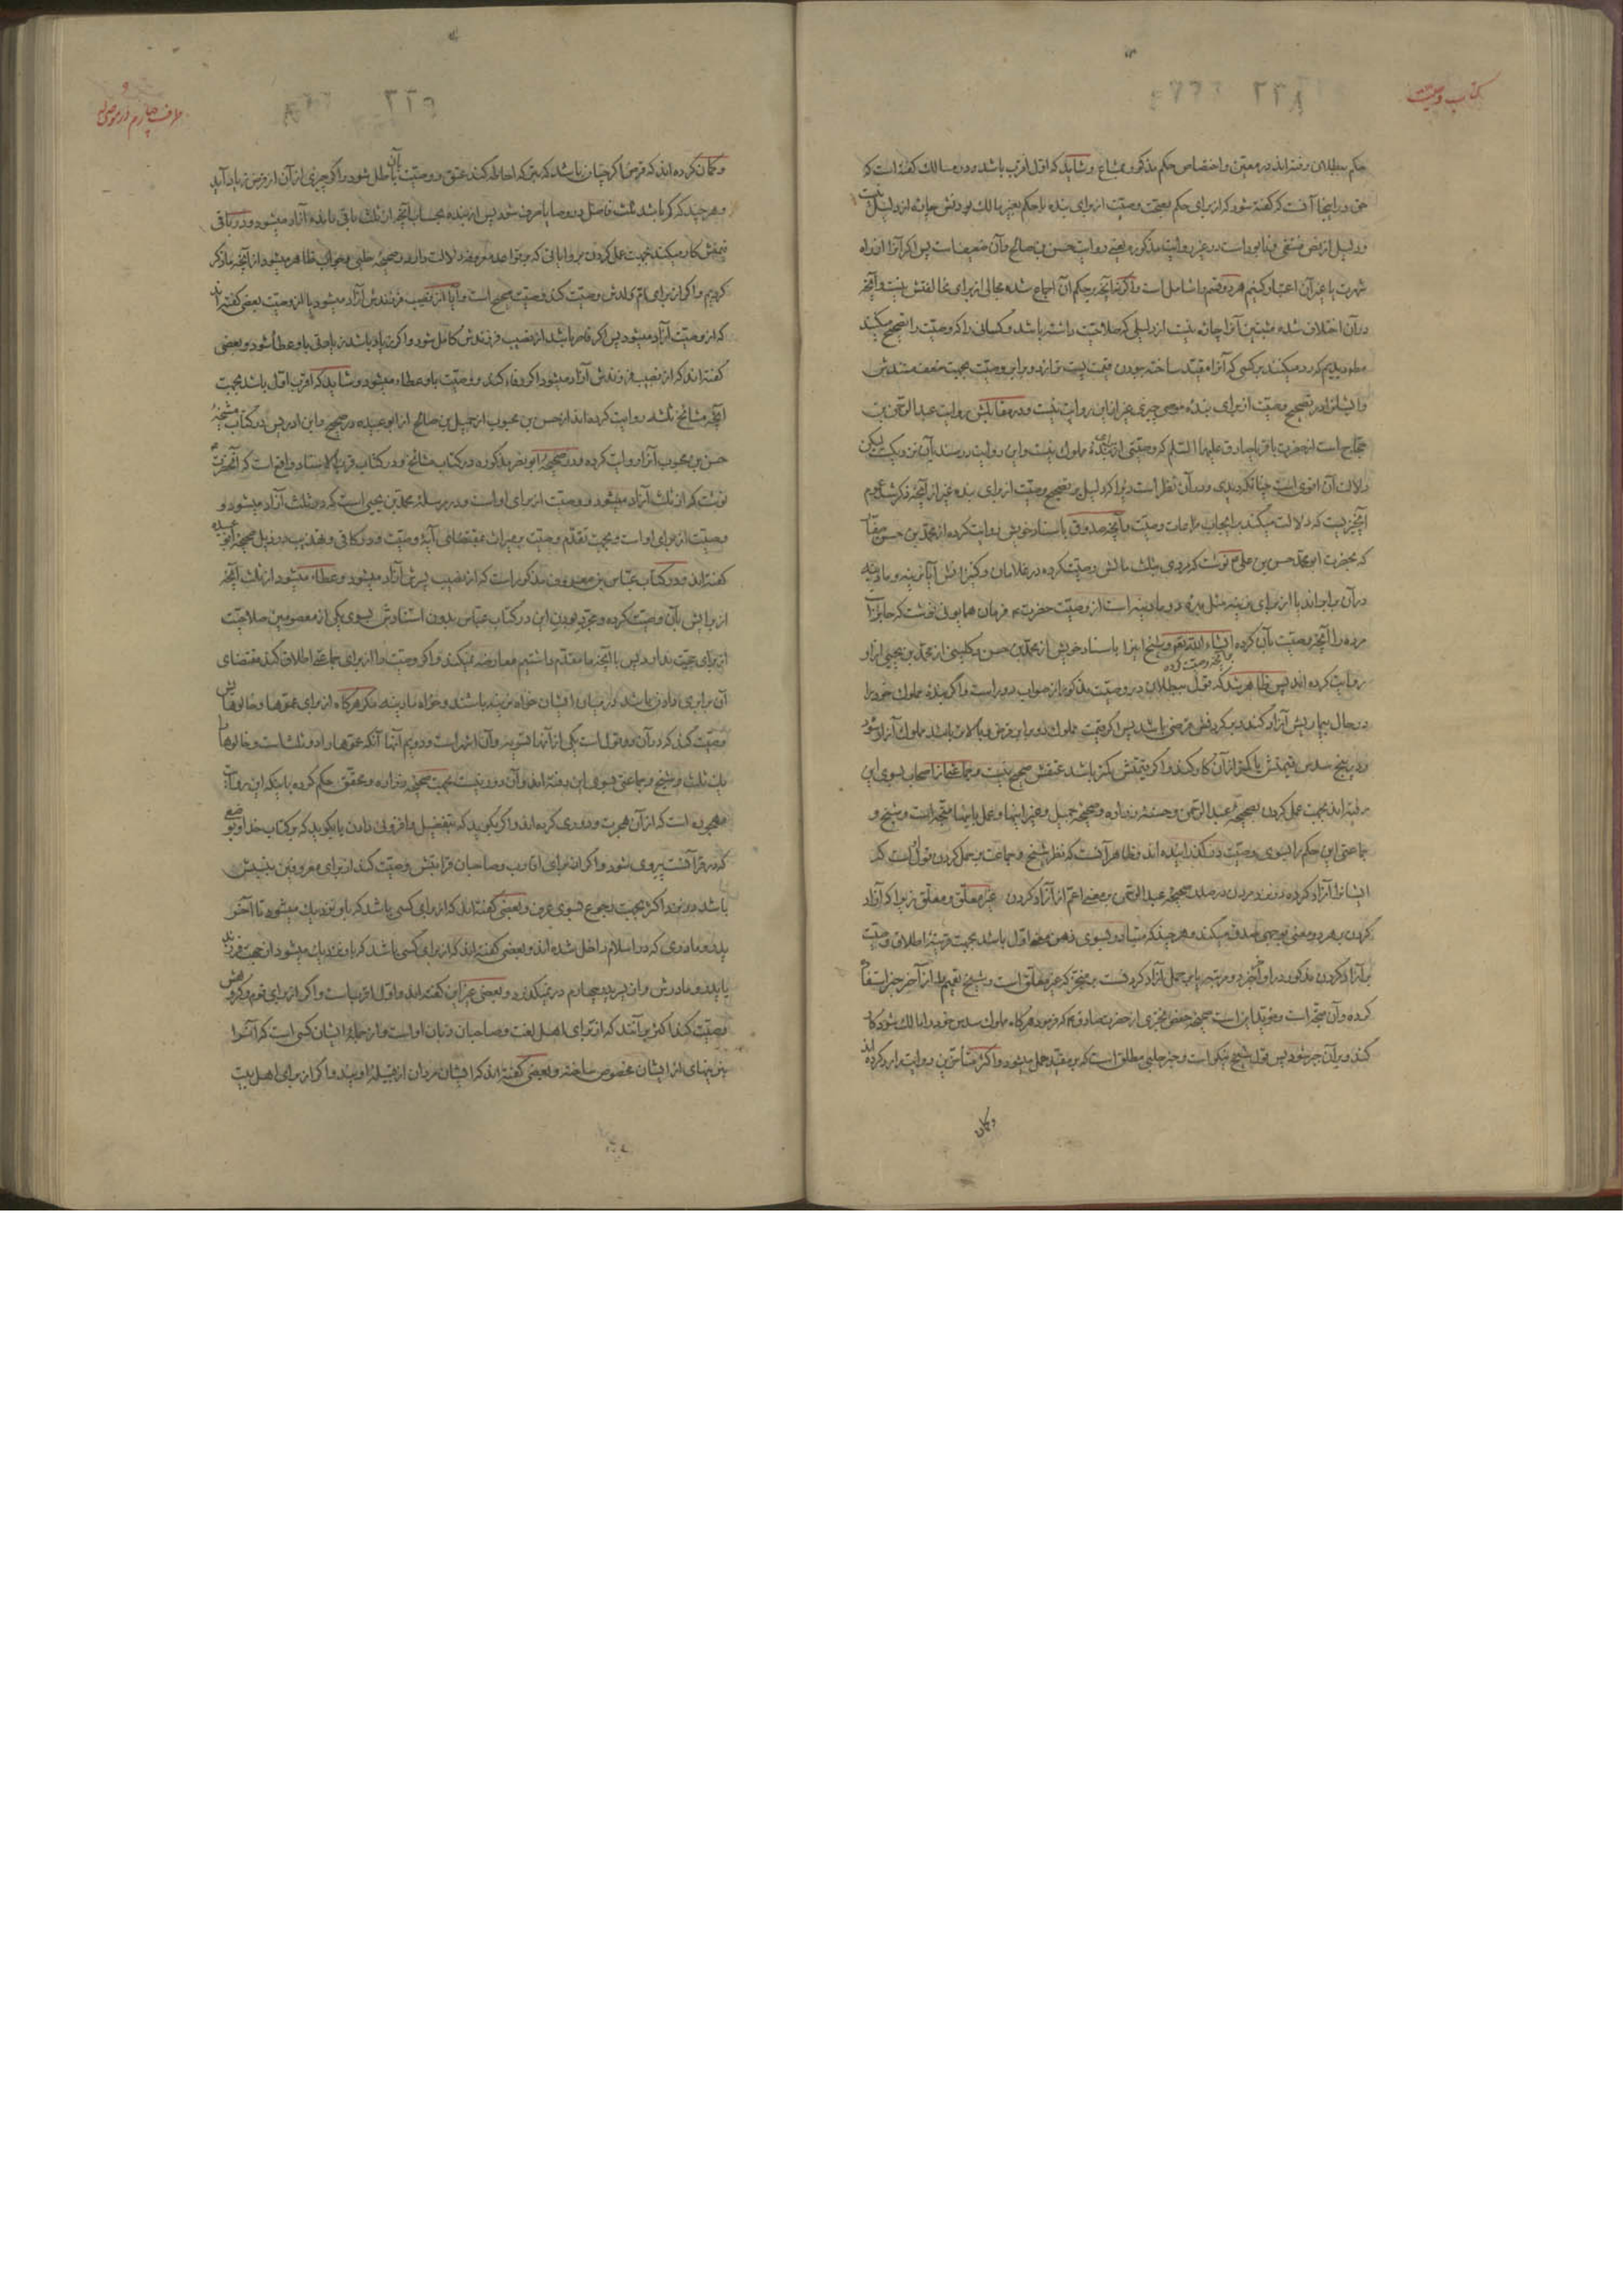 کتاب وصیت
۲۲۸
حکم ببطلان رفته‌اند در معین و اختصاص حکم مذکور بمشاع و شاید که اول اقرب باشد و در مسالک گفته است که
حق در اینجا آنست که گفته شود که از برای حکم بصحت وصیت از برای بنده با حکم بغیر مالک بودنش جاده از دلیل نیست
و دلیل از نص منتفی و نابود است در غیر روایت مذکوره یعنی روایت حسن بن صالح و آن ضعیف است پس اگر آنرا افراد
شهرت یا غیر آن اعتبار کنیم هر دو قسم را شامل است و اگر بآنچه بر حکم آن اجماع شده مجالی از برای مخالفتش نیست و آنچه
در آن اختلاف شده مثبتین آنرا چاره نیست از دلیلی که صلاحیت داشته باشد و کسانی را که وصیت را تصحیح میکنند
و ایشانرا در تصحیح وصیت از برای بنده موصی چیزی غیر از این روایت نیست و در مقابلش روایت عبدالرحمن بن
حجاج است از حضرت باقر یا صادق علیهما السلام که وصیتی از برای بنده مملوک نیست و این روایت در سند از آن نزدیکست لیکن
دلالت آن اقوی است چنانکه دیدی و در آن نظر است زیرا که دلیل بر تصحیح وصیت از برای بنده غیر از آنچه ذکر شد عموم
آنچیزیست که دلالت میکند بر ایجاب مراعات وصیت و آنچه صدوق باسناد خویش روایت کرده از محمد بن حسن صفار
که بحضرت ابو محمد حسن بن علی ع نوشت که مردی بثلث مالش وصیت کرده در غلامان و کنیزانش آیا نرینه و مادینه
در آن برابرند یا از برای نرینه مثل بهره دو مادینه است از وصیت حضرت ع فرمان همایونی نوشت که جایز است
مرده را آنچه وصیت بآن کرده انشاء الله تعالی و شیخ این را باسناد خویش از محمد بن حسن و کلینی از محمد بن یحیی از او
برآنچه وصیت کرده
روایت کرده‌اند پس ظاهر شد که قول ببطلان در وصیت مذکور از صواب دور است و اگر بنده مملوک خود را
در حال بیماریش آزاد کند و بر گردنش قرضی باشد پس اگر قیمت مملوک دو برابر قرض یا بالاتر باشد مملوک آزاد شود
و در پنج سدس قیمتش یا کمتر از آن کار کند و اگر قیمتش کمتر باشد عتقش صحیح نیست و جماعتی از اصحاب بسوی این
رفته‌اند بجهت عمل کردن بصحیحهٔ عبدالرحمن و حسنهٔ زراره و صحیحهٔ جمیل و غیر اینها و عمل باینها متجه است و شیخ و
جماعتی این حکم را بسوی وصیت در گذرانیده‌اند و ظاهر آنست که نظر شیخ و جماعت بر حمل کردن قول آنست که
ایشانرا آزاد کرده در نزد مردن در صدر صحیحهٔ عبدالرحمن بر معنی اعم از آزاد کردن غیر معلق و معلق زیرا که آزاد
کردن بر هر دو معنی بوجهی صدق میکند و هر چند که متبادر بسوی ذهن معنی اول باشد بجهت قرینهٔ اطلاق وصیت
بر آزاد کردن مذکور در اواخر خبر
کرده و آن متجه است و مؤید این است صحیحهٔ حفص بختری از حضرت صادق ع که فرمود هر گاه مملوک سدس خود را مالک شود کار
کند و بر آن جبر شود پس قول شیخ نیکو است و خبر حلبی مطلق است که بر مقید حمل میشود و اکثر متأخرین روایت را رد کرده‌اند
و گمان
مرافعه چهارم در موصی له
۲۲۹
و گمان کرده‌اند که قرض اگر چنان باشد که بترکه احاطه کند عتق و وصیت بآن باطل شود و اگر چیزی از آن از قرض زیاد آید
و هر چند که کم باشد ثلث فاضل در وصایا صرف شود پس از بنده بحساب آنچه از ثلث باقی مانده آزاد میشود و در باقی
قیمتش کار میکند بجهت عمل کردن بروایاتی که بر قواعد مقرره دلالت دارد و صحیحهٔ حلبی و جواب ظاهر میشود از آنچه ما ذکر
کردیم و اگر از برای ام ولدش وصیت کند وصیت صحیح است و آیا از نصیب فرزندش آزاد میشود یا از وصیت بعضی گفته‌اند
که از وصیت آزاد میشود پس اگر قاصر باشد از نصیب فرزندش کامل شود و اگر زیاد باشد زیادتی باو عطا شود و بعضی
گفته‌اند که از نصیب فرزندش آزاد میشود اگر وفا کند و وصیت باو عطاء میشود و شاید که اقرب اول باشد بجهت
آنچه مشائخ ثلثه روایت کرده‌اند از حسن بن محبوب از جمیل بن صالح از ابو عبیده در صحیح و ابن ادریس در کتاب مشیخهٔ
حسن بن محبوب آنرا روایت کرده و در صحیحهٔ ابو نصر مذکوره و در کتاب مشائخ و در کتاب قرب الاسناد واقع است که آنحضرت ع
نوشت که از ثلث آزاد میشود و وصیت از برای او است و در مرسلهٔ محمد بن یحیی است که در ثلث آزاد میشود و
وصیت از برای او است و بجهت تقدم وصیت بر میراث بمقتضای آیهٔ وصیت و در کافی و تهذیب در ذیل صحیحهٔ ابو عبیده
گفته‌اند و در کتاب عباس بن معروف مذکور است که از نصیب پسرش آزاد میشود و عطاء میشود از ثلث آنچه
از برایش بآن وصیت کرده و مجرد بودن این در کتاب عباس بدون استنادش بسوی یکی از معصومین صلاحیت
از برای حجیت ندارد پس با آنچه ما مقدم داشتیم معارضه نمیکند و اگر وصیت را از برای جماعتی اطلاق کند مقتضای
آن برابری دادن باشد در میان ایشان خواه نرینه باشند و خواه مادینه مگر هر گاه از برای عموها و خالوهایش
وصیت کند که در آن دو قول است یکی از آنها تسویه و آن اشهر است و دویم آنها آنکه عموها را دو ثلث است و خالوها را
یک ثلث و شیخ و جماعتی بسوی این رفته‌اند و آن دور نیست بجهت صحیحهٔ زراره و محقق حکم کرده باینکه این روایت
مهجوره است که از آن هجرت و دوری گزیده‌اند و اگر بگوید که بتفضیل و افزونی دادن یا بگوید که بر کتاب خدا و بوضعی
که در قرآنست پیروی شود و اگر از برای اقارب و صاحبان قرابتش وصیت کند از برای معروفین بنسبش
باشد در نزد اکثر بجهت رجوع بسوی عرف و بعضی گفته‌اند که از برای کسی باشد که باو نزدیک میشود تا آخر
پدر و مادری که در اسلام داخل شده‌اند و بعضی گفته‌اند که از برای کسی باشد که باو نزدیک میشود از جهت فرزند
یا پدر و مادرش و از پدر چهارم در نمیگذرد و بعضی غیر این گفته‌اند و اول اقرب است و اگر از برای قوم و گروهش
وصیت کند اکثر بر آنند که از برای اهل لغت و صاحبان زبان او است و از جملهٔ ایشان کسی است که آنرا
بنرینهای از ایشان مخصوص ساخته و بعضی گفته‌اند که ایشان مردان از قبیلهٔ اویند و اگر از برای اهل بیت